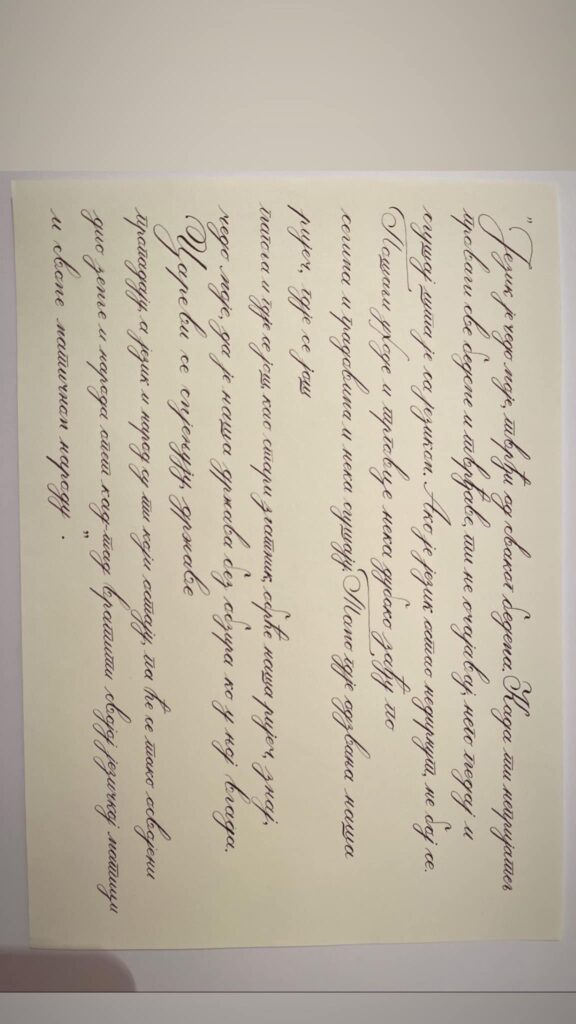 "Језик је чедо моје, тврђи од сваког бедема. Када ти непријатељ
провали све бедеме и тврђаве, ти не очајавај, него гледај и
слушај шта је са језиком. Ако је језик остао нетрнут, не бој се.
Пошаљи уходе и трговце нека дубоко зађу по
селима и градовима и нека слушају. Тамо где одзвања наша
ријеч, гдје се још
глагола и гдје се још, као стари златник, обрће наша ријеч, знај,
чедо моје, да је наша држава без обзира ко у њој влада.
Цареви се смјењују, државе
пропадају, а језик и народ су ти који остају, па ће се тако освојени
дио земље и народа опет кад-тад вратити својој језичкој матици
и своме матичном народу".